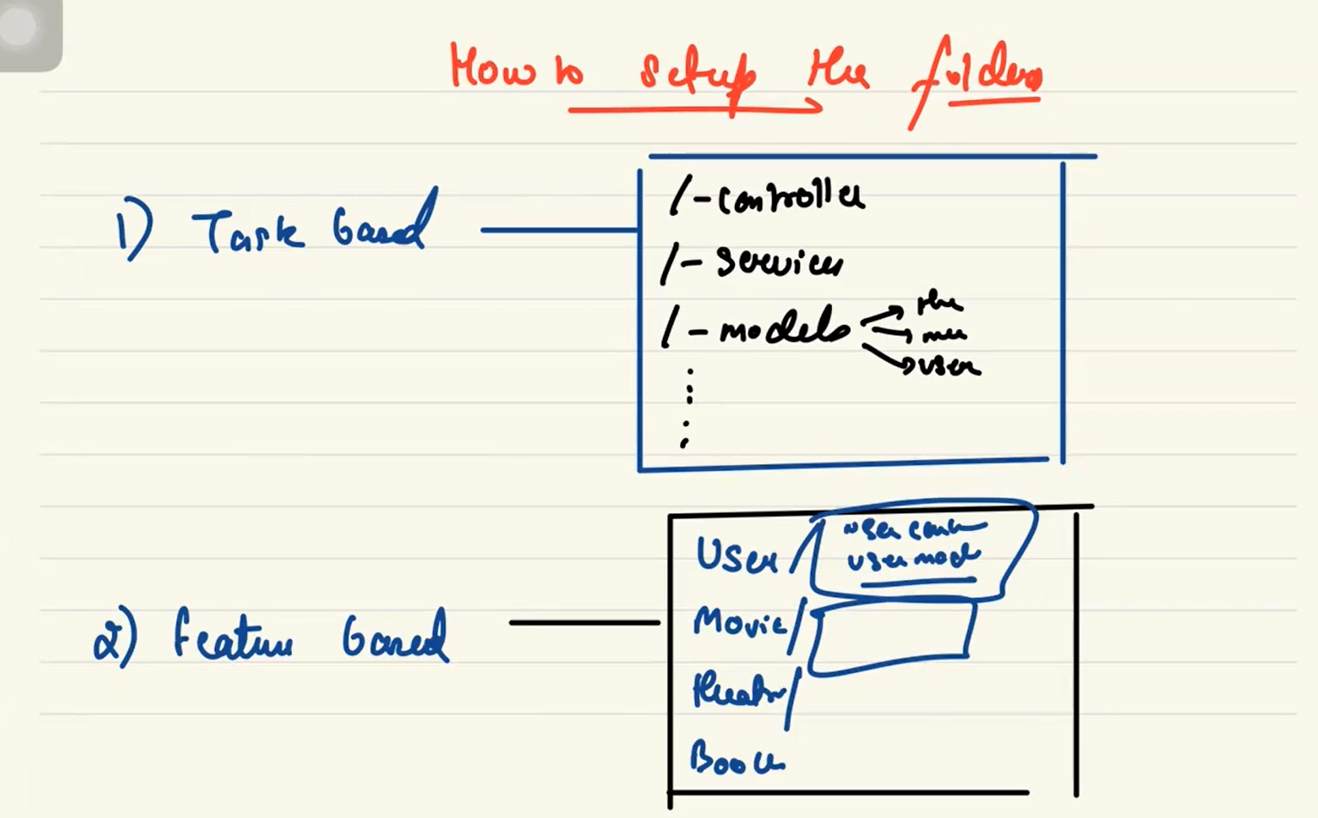 How to setup the folders
1) Task based
/-controller
/-services
/-models
the
user
2) feature based
User/
user cont
user mode
Movie/
Theatr/
Book